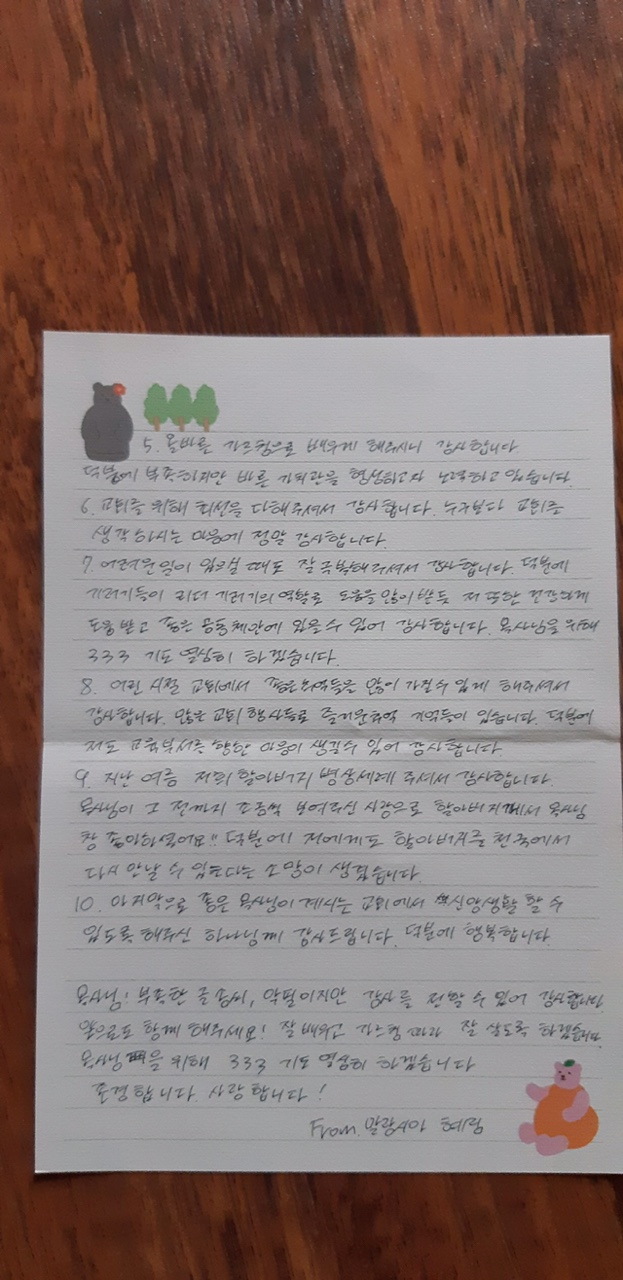 5. 올바른 가르침으로 배우게 해주시니 감사합니다
덕분에 부족하지만 바른 가치관을 형성하고자 노력하고 있습니다.
6. 교회를 위해 최선을 다해주셔서 감사합니다. 누구보다 교회를
생각하시는 마음에 정말 감사합니다.
7. 어려운일이 있으실 때도 잘 극복해주셔서 감사합니다. 덕분에
기러기들이 리더 기러기의 역할로 도움을 많이 받듯 저 또한 건강하게
도움 받고 좋은 공동체안에 있을 수 있어 감사합니다. 목사님을 위해
333 기도 열심히 하겠습니다.
8. 어린 시절 교회에서 좋은 추억들을 많이 가질 수 있게 해주셔서
감사합니다. 많은 교회 행사들로 즐거운 추억 기억들이 있습니다. 덕분에
저도 교육부서를 향한 마음이 생길수 있어 감사합니다
9. 지난 여름 저희 할아버지 병상세례 주셔서 감사합니다.
목사님이 그 전까지 조금씩 보여주신 사랑으로 할아버지께서 목사님
참 좋아하셨어요!! 덕분에 저에게도 할아버지를 천국에서
다시 만날 수 있다는 소망이 생겼습니다.
10. 마지막으로 좋은 목사님이 계시는 교회에서 신앙생활 할 수
있도록 해주신 하나님께 감사드립니다. 덕분에 행복합니다.
목사님! 부족한 글솜씨, 악필이지만 감사를 전할 수 있어 감사합니다.
앞으로도 함께 해주세요! 잘 배우고 가르침 따라 잘 살도록 하겠습니다.
목사님을 위해 333 기도 열심히 하겠습니다
존경합니다. 사랑합니다!
From. 말랑시아 혜림